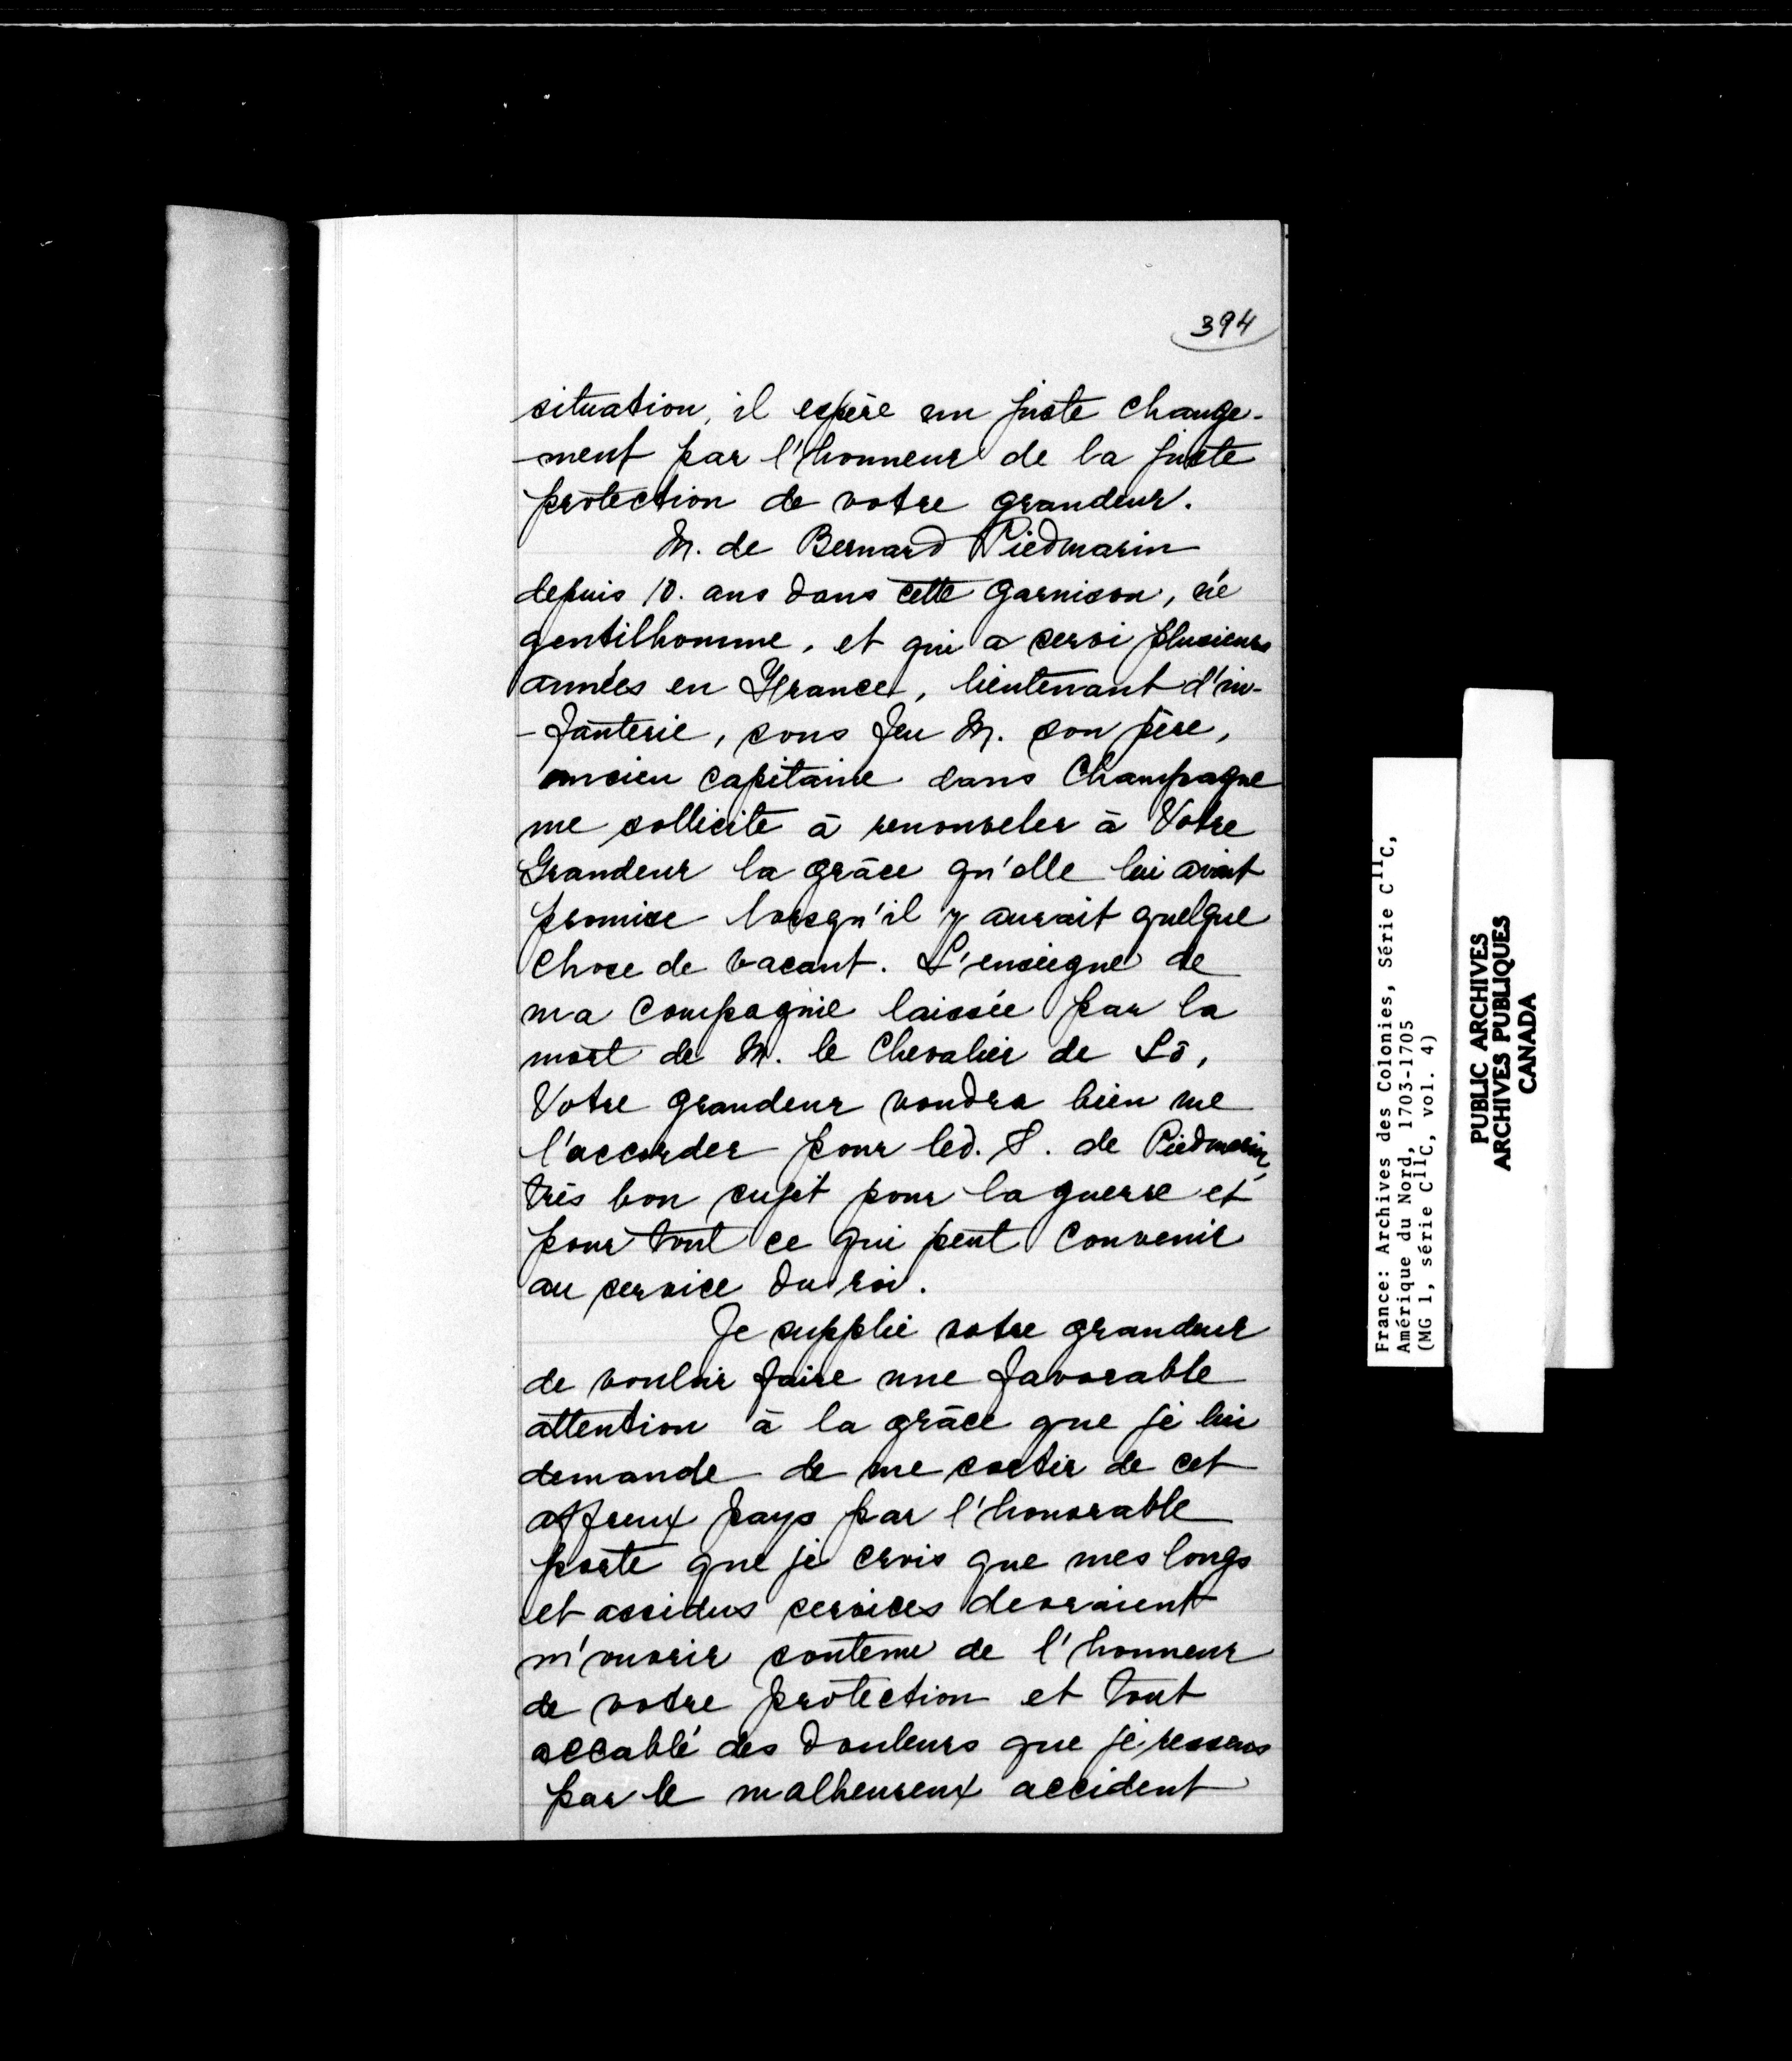 394
situation, il espère un juste change-
-ment par l'honneur de la juste
protection de votre grandeur.
M. de Bernard Piedmarin
depuis 10. ans dans cette garnison, né
gentilhomme, et qui a servi plusieurs
années en France, lieutenant d'in-
-fanterie, sous feu M. son père,
ancien capitaine dans Champagne
me sollicite à renouveler à Votre
Grandeur la grâce qu'elle lui avait
promise lorsqu'il y aurait quelque
chose de vacant. L'enseigne de
ma compagnie laissée par la
mort de M. le Chevalier de Lô,
Votre grandeur voudra bien me
l'accorder pour led. S. de Piedmarin,
très bon sujet pour la guerre et
pour tout ce qui peut convenir
au service du roi.
Je supplie votre grandeur
de vouloir faire une favorable
attention à la grâce que je lui
demande de me sortir de cet
affreux pays par l'honorable
porte que je crois que mes longs
et assidus services devraient
m'ouvrir soutenu de l'honneur
de votre protection et tout
accablé des douleurs que je ressens
par le malheureux accident
France: Archives des Colonies, Série C11C,
Amérique du Nord, 1703-1705
(MG 1, série C11C, vol. 4)
PUBLIC ARCHIVES
ARCHIVES PUBLIQUES
CANADA